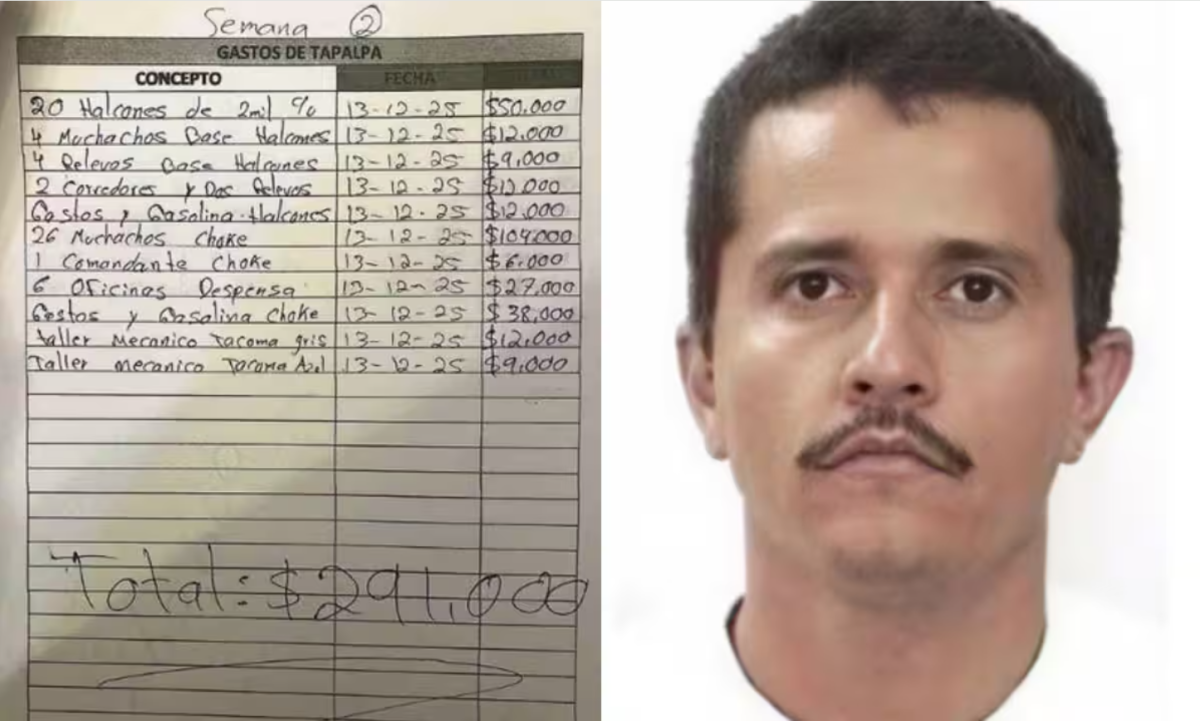 Semana 2
GASTOS DE TAPALPA
CONCEPTO FECHA
20 Halcones de 2mil % 13-12-25 $50.000
4 Muchachos Base Halcones 13-12-25 $12.000
4 Relevos Base Halcones 13-12-25 $9,000
2 Corredores y Dos Relevos 13-12-25 $12.000
Gastos y Gasolina Halcones 13-12-25 $12.000
26 Muchachos Choke 13-12-25 $104.000
1 Comandante Choke 13-12-25 $6.000
6 Oficinas Despensa 13-12-25 $27,000
Gastos y Gasolina Choke 13-12-25 $38,000
taller Mecanico Tacoma gris 13-12-25 $12,000
Taller mecanico Tacoma Azul 13-12-25 $9,000
Total: $291,000